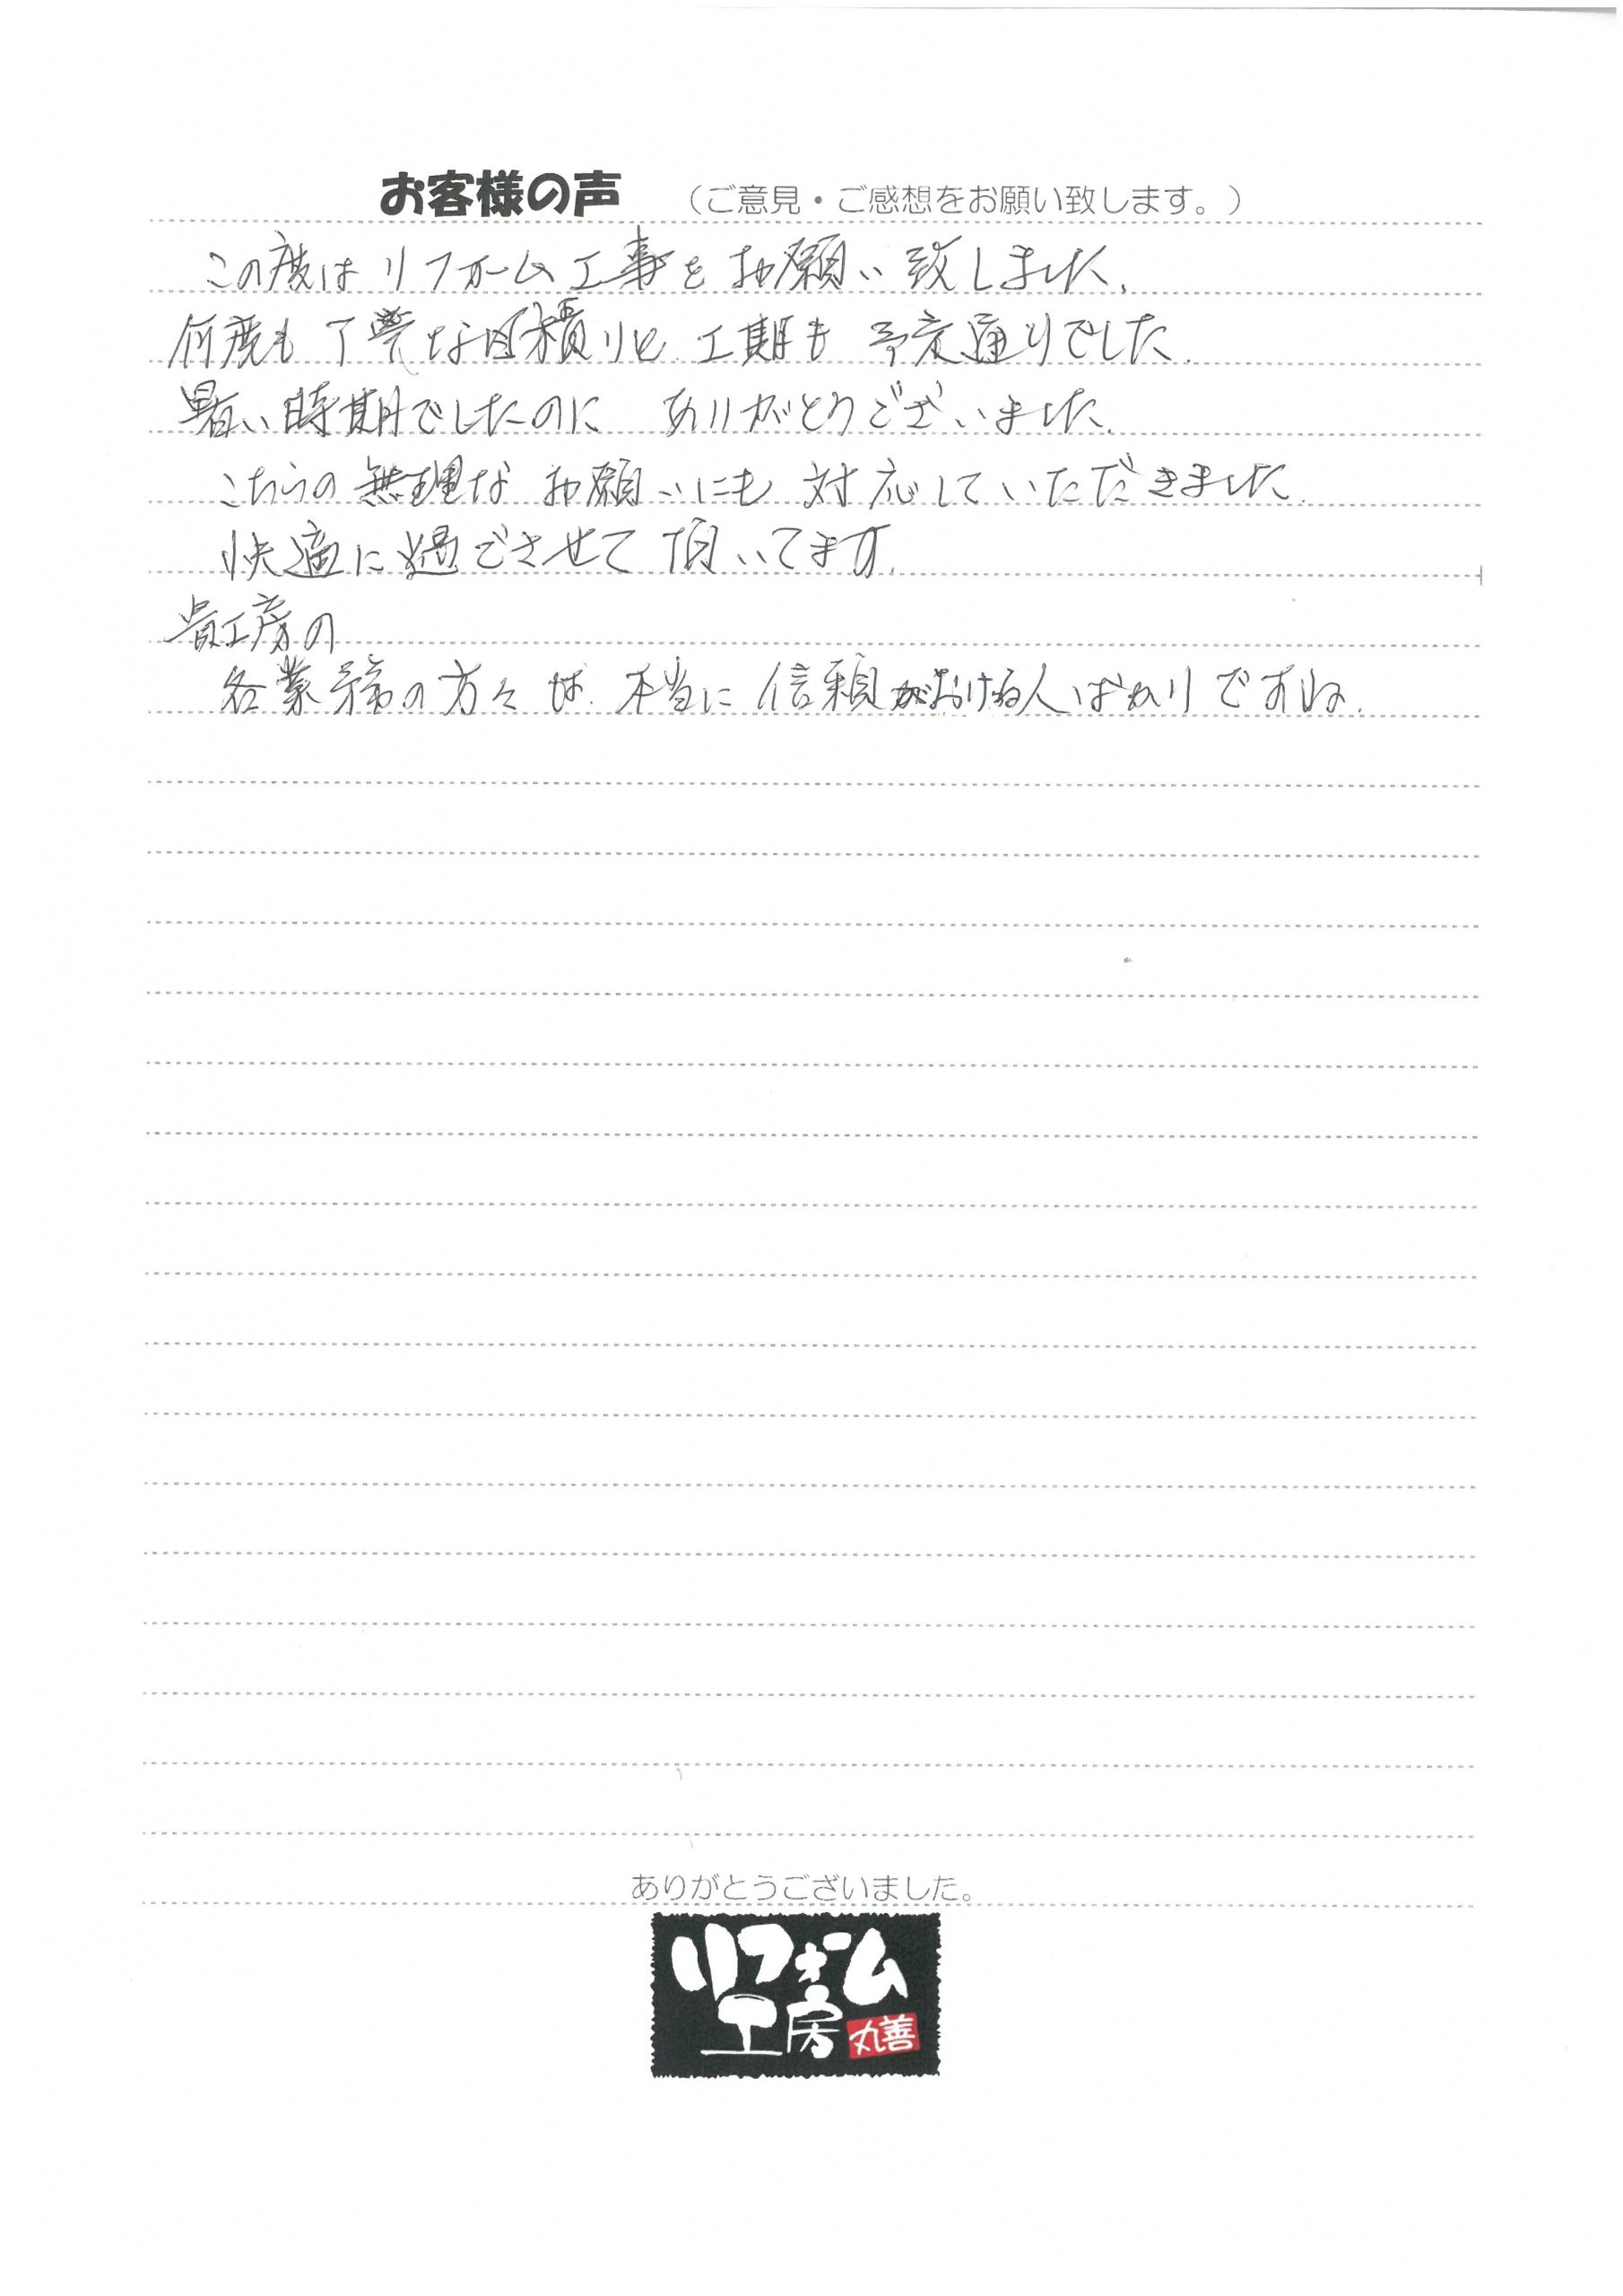 お客様の声 （ご意見・ご感想をお願い致します。）
この度は リフォーム工事を お願い致しました.
何度も 丁寧な見積りと 工期も 予定通りでした.
暑い時期でしたのに ありがとうございました.
こちらの無理な お願いにも 対応していただきました.
快適に過ごさせて 頂いてます.
貴工房の
各業 の方々は. 本当に 信頼がおける人ばかりですね.
ありがとうございました。
リフォーム
工房 丸善